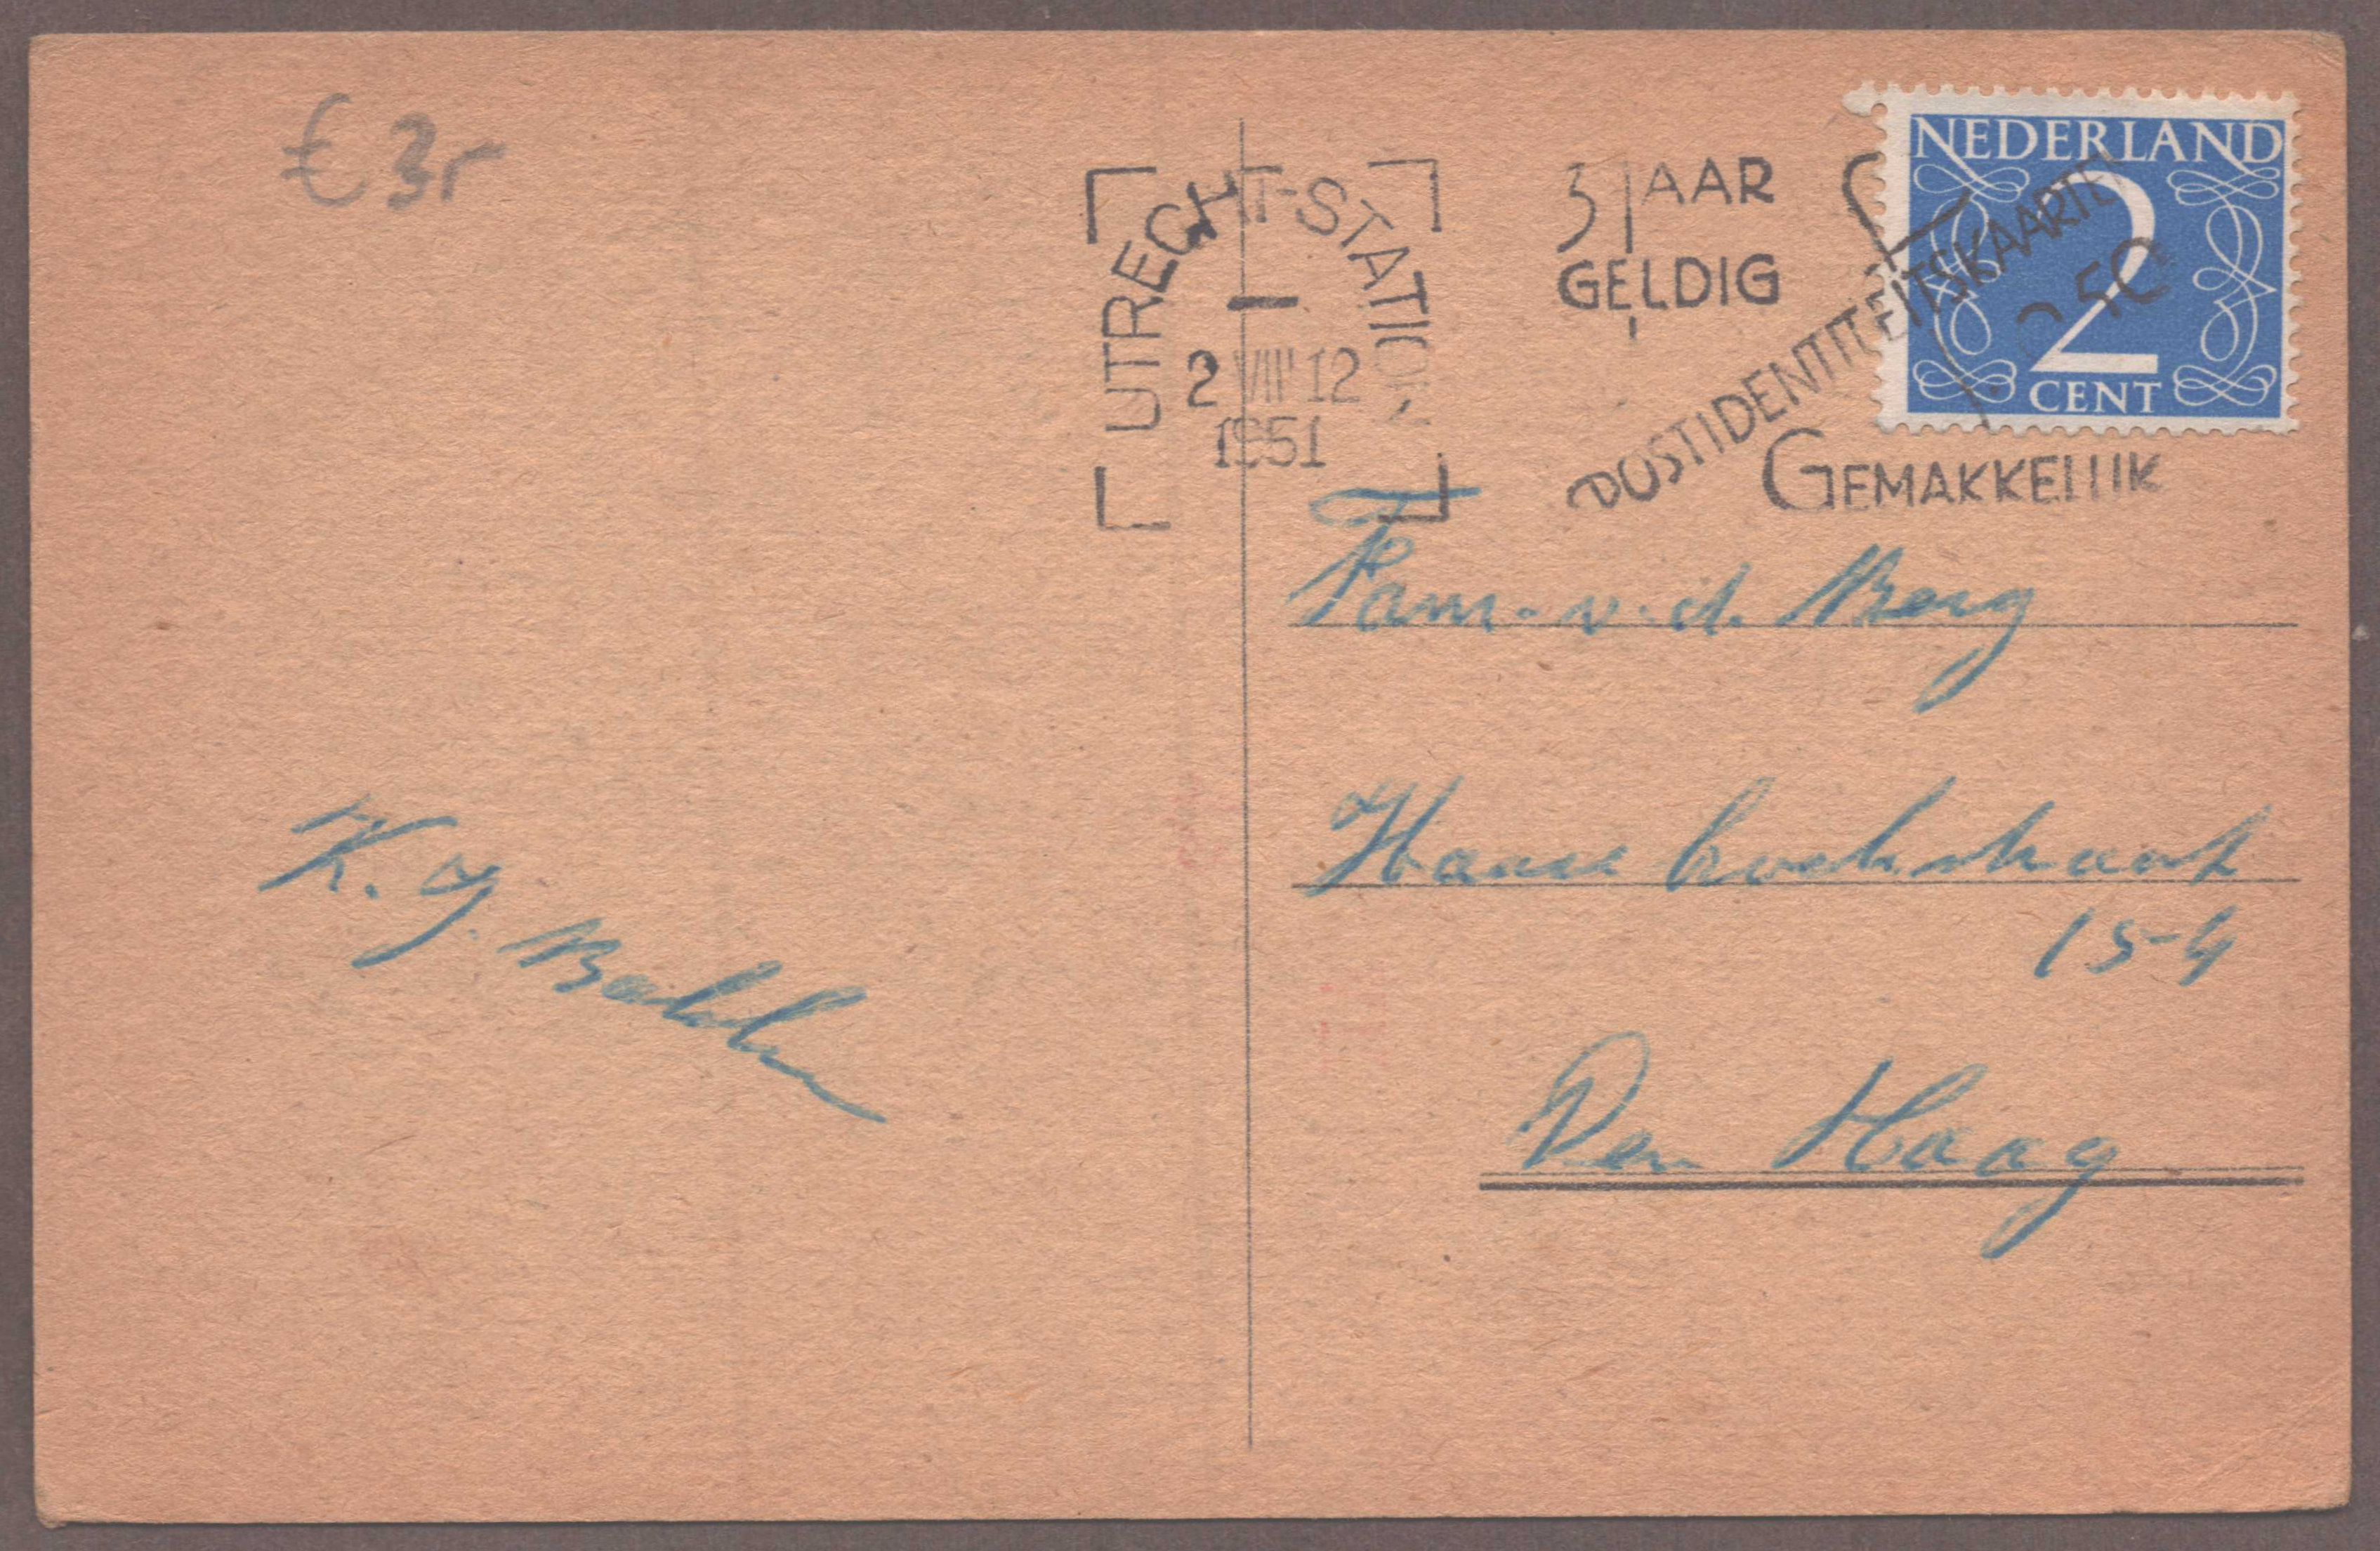 € 3,-
UTRECHT-STATION
2 VIII 12
1951
3 JAAR
GELDIG
POSTIDENTITEITSKAARTEN
GEMAKKELIJK
NEDERLAND
2
CENT
Fam. v. d. Berg
154
Den Haag
K. J. Bakker